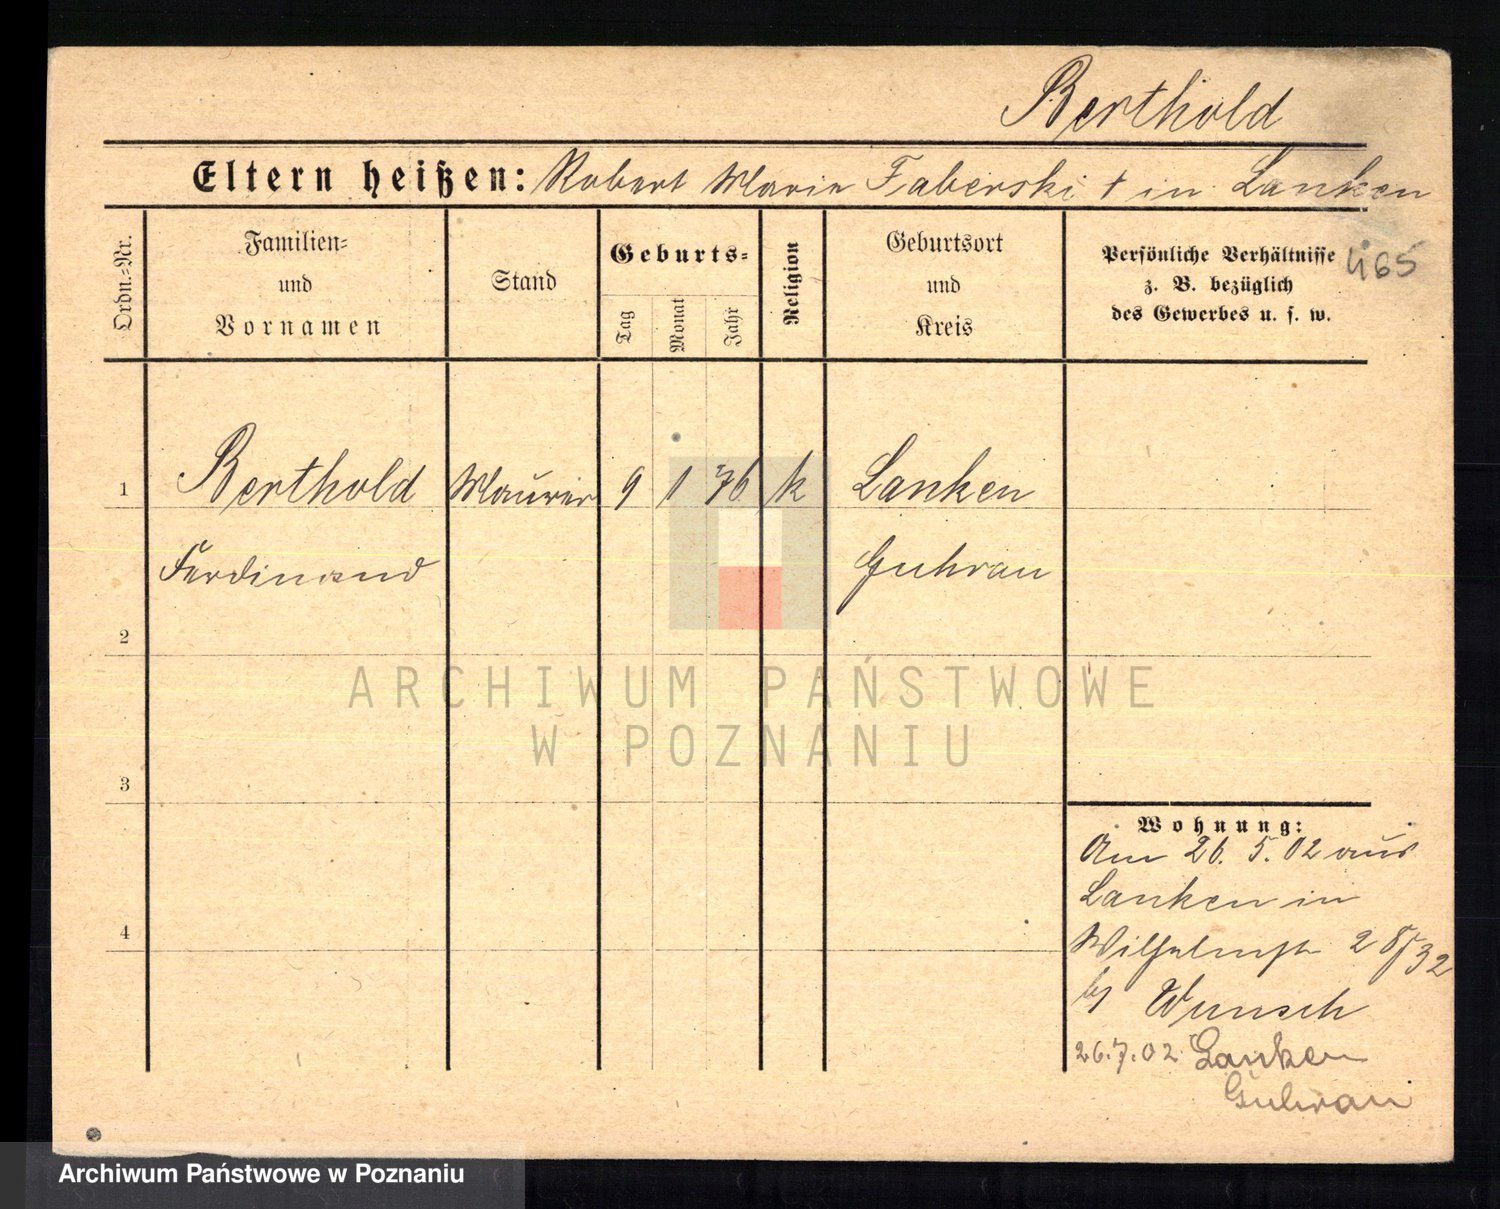 Berthold
Eltern heißen: Robert Marie Faberski † in Lanken
Ordn.=Nr.
Familien=
und
Vornamen
Stand
Geburts=
Tag
Monat
Jahr
Religion
Geburtsort
und
Kreis
Persönliche Verhältnisse
z. B. bezüglich
des Gewerbes u. s. w.
465
1 Berthold Maurer 9 1 76 k Lanken
Ferdinand Guhrau
2
3
4
Wohnung:
Am 26. 5. 02 aus
Lanken in
Wilhelmstr 28/32
bei Wunsch
26.7.02 Lanken
Guhrau
ARCHIWUM PAŃSTWOWE
W POZNANIU
Archiwum Państwowe w Poznaniu